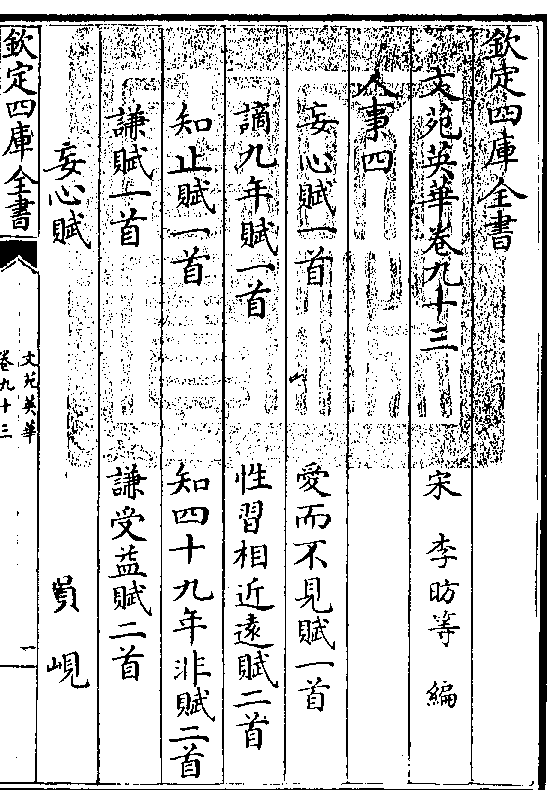 欽定四庫全書
文苑英華卷九十三
宋 李昉等 編
人事四
妄心賦一首 愛而不見賦一首
謫九年賦一首 性習相近遠賦二首
知止賦一首 知四十九年非賦二首
謙賦一首 謙受益賦二首
妄心賦 貟峴
欽定四庫全書
文苑英華
卷九十三
一